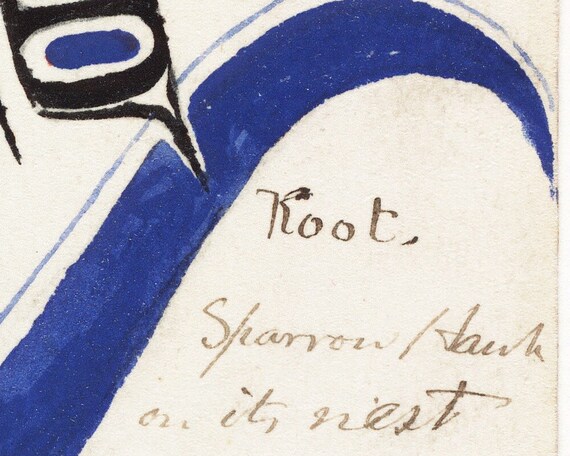 Koot.
Sparrow Hawk
on its nest